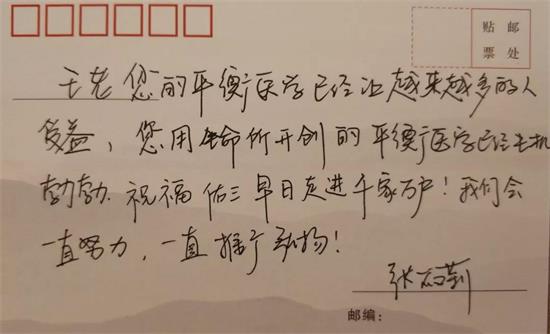 贴 邮
票 处
王老 您的平衡医学已经让越来越多的人
受益,您用生命所开创的平衡医学已经生机
勃勃.祝福佑三早日走进千家万户!我们会
一直努力,一直推广弘扬!
张
邮编: